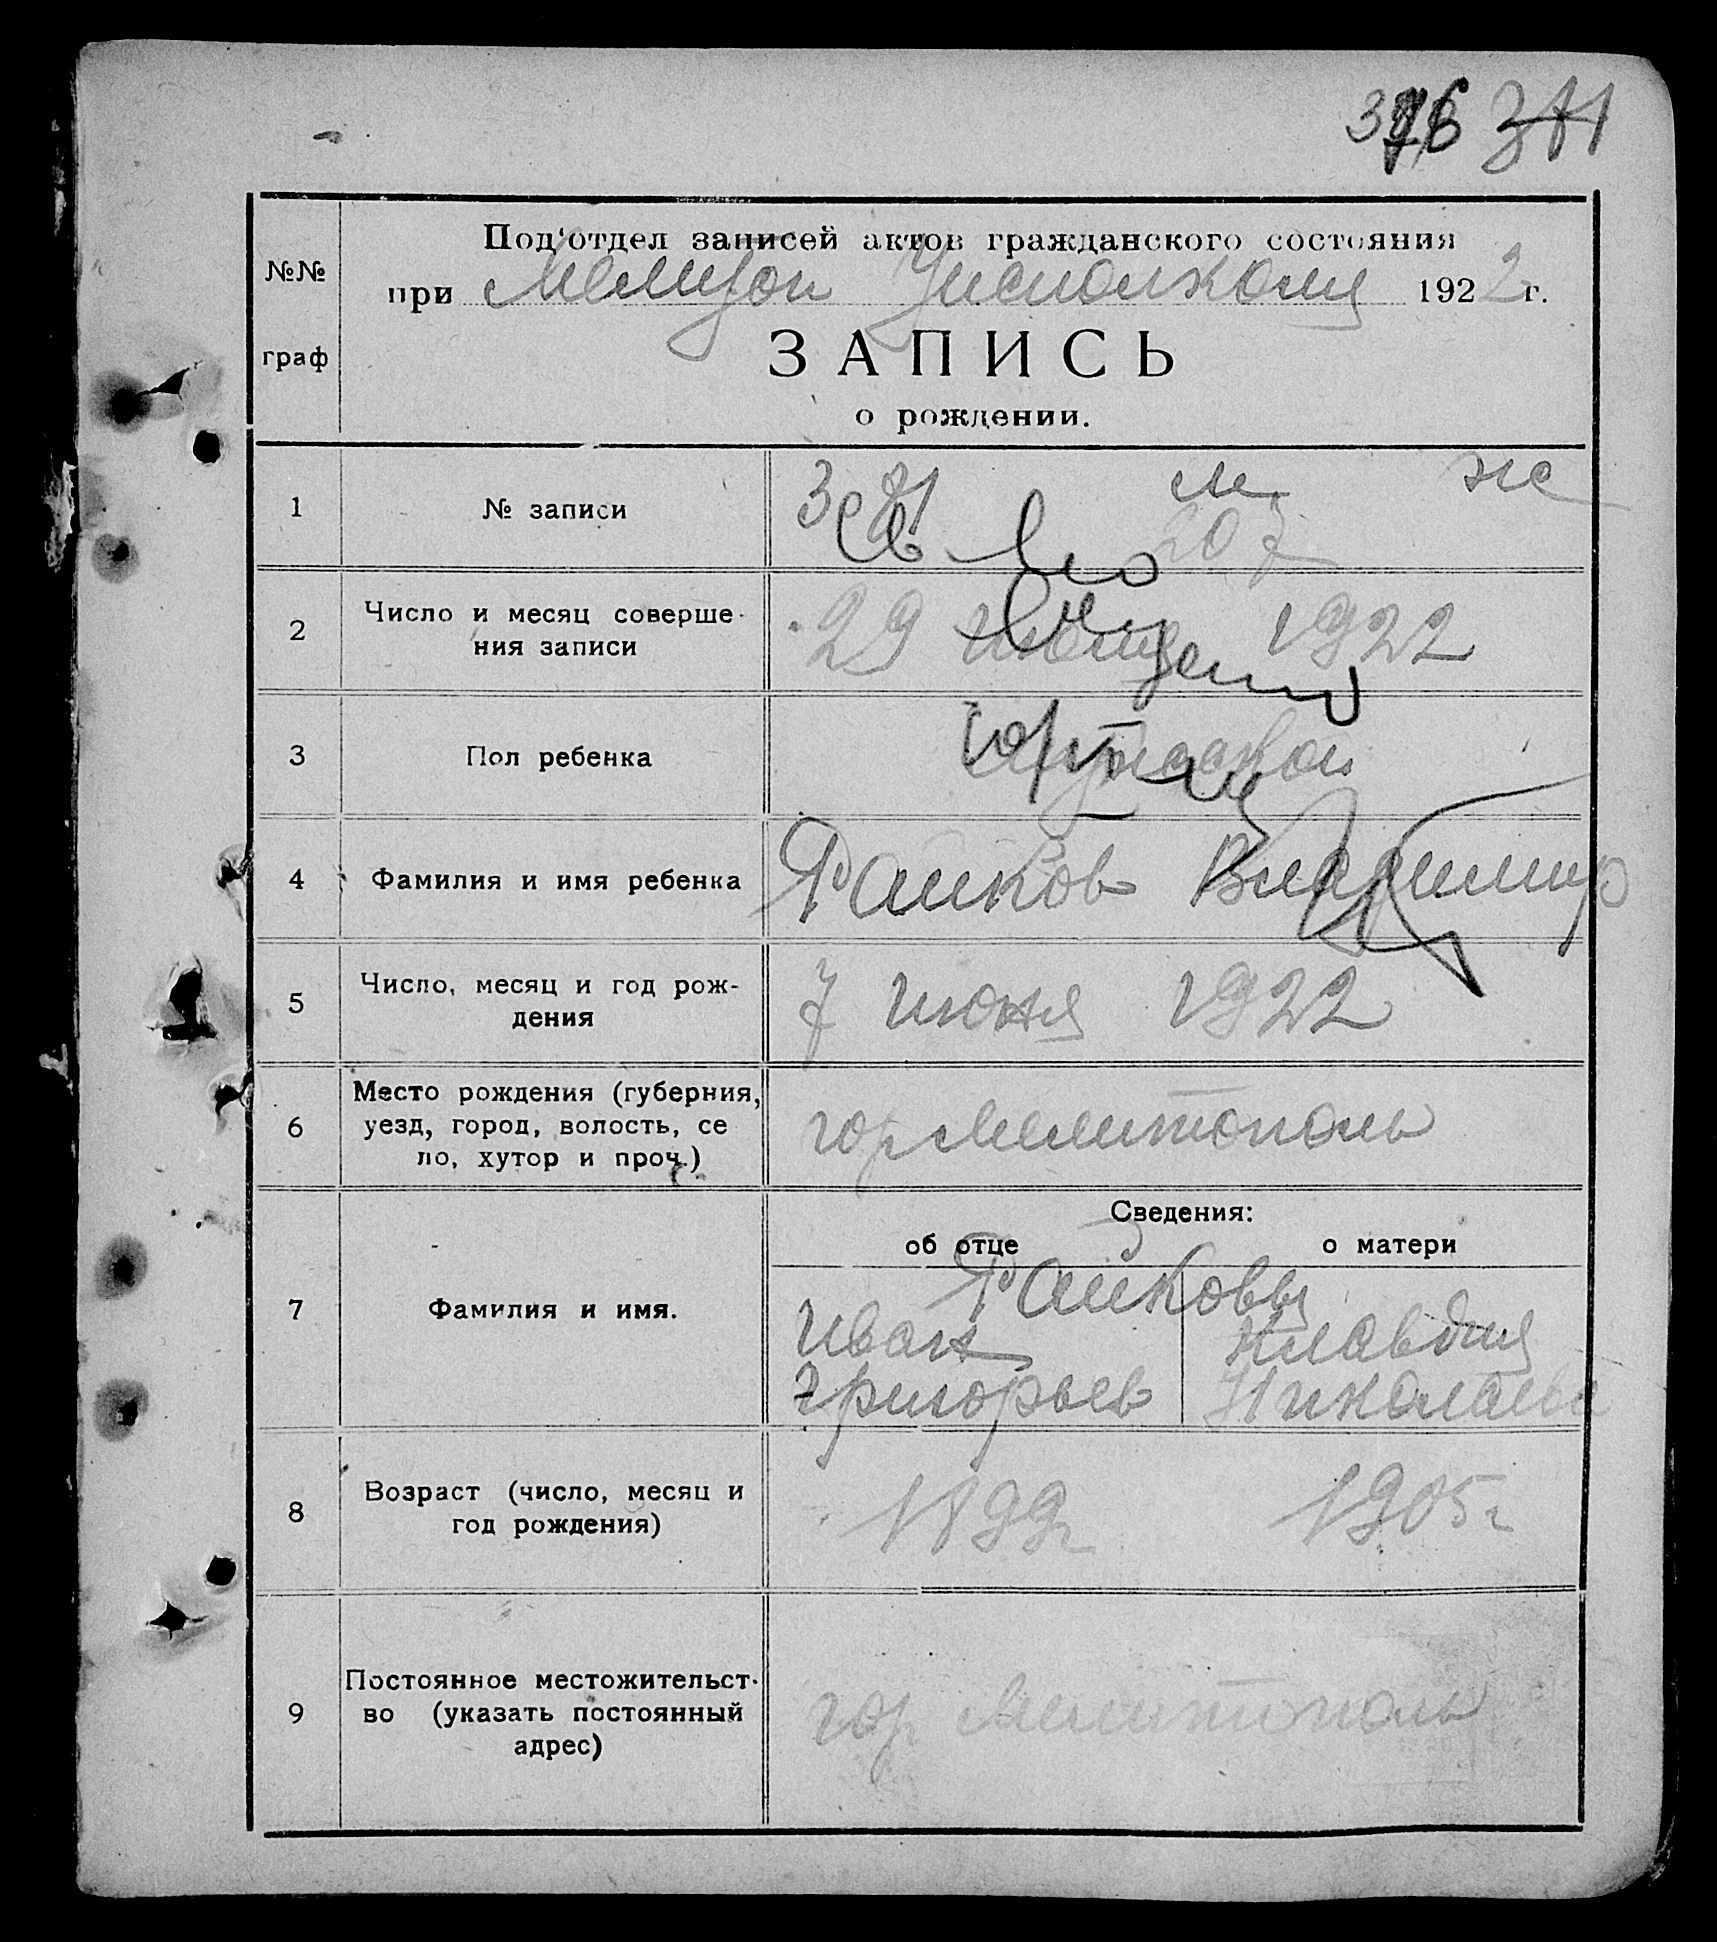 376 371
№№
граф
Под'отдел записей актов гражданского состояния
при Мелитоп Уисполкома 1922 г.
ЗАПИСЬ
о рождении.
1
№ записи
381 м ж
207
2
Число и месяц соверше-
ния записи
29 1922
3
Пол ребенка
мужской
4
Фамилия и имя ребенка
Райков Владимир
5
Число, месяц и год рож-
дения
7 июня 1922
6
Место рождения (губерния,
уезд, город, волость, се
ло, хутор и проч.)
гор Мелитополь
Сведения:
об отце о матери
7
Фамилия и имя.
Райковы
Иван Клавдия
Григорьев Николаев
8
Возраст (число, месяц и
год рождения)
1899г 1905г
9
Постоянное местожительст-
во (указать постоянный
адрес)
гор Мелитополь